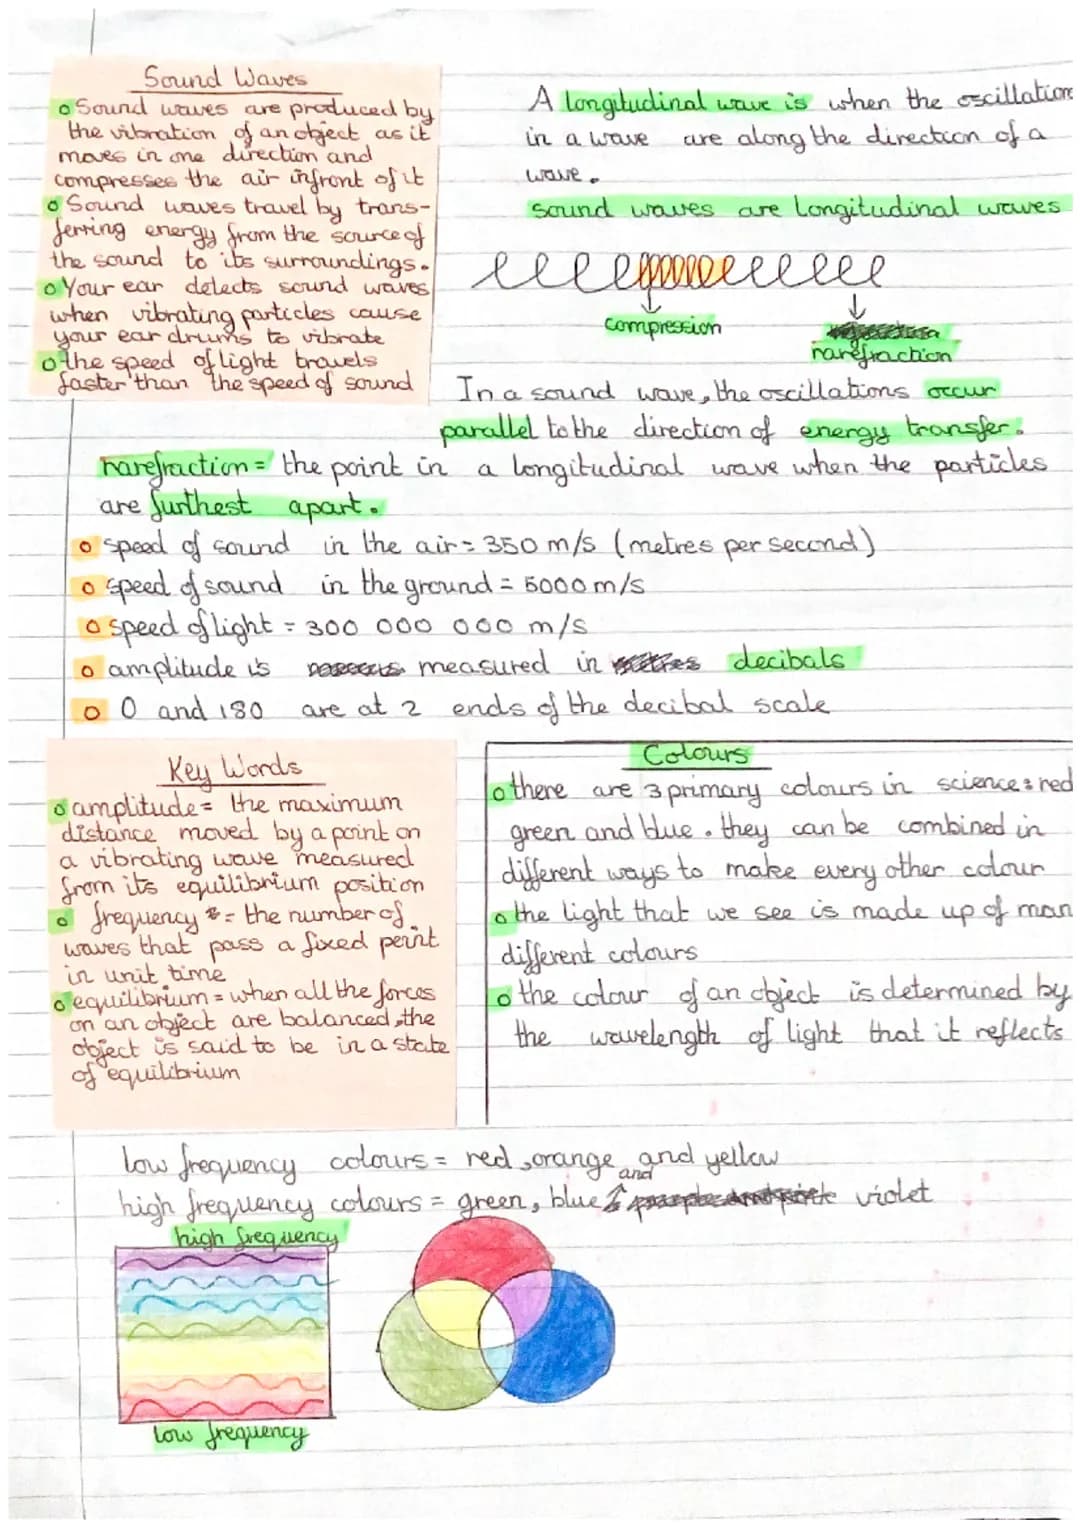 Sound Waves
Sound waves are produced by
the vibration of an object as it
moves in one direction and
compresses the air infront of it
Sound waves travel by trans-
ferring energy from the source of
the sound to its surroundings.
Your ear detects sound waves
when vibrating particles cause
your ear drums to vibrate
the speed of light travels
faster than the speed of sound
A longitudinal wave is when the oscillations
in a wave are along the direction of a
wave.
sound waves are longitudinal waves
compression
rarefraction
In a sound wave, the oscillations occur
parallel to the direction of energy transfer.
rarefraction = the point in a longitudinal wave when the particles
are furthest apart.
speed of sound in the air = 350 m/s (metres per second)
speed of sound in the ground = 5000 m/s
speed of light = 300 000 000 m/s
amplitude is measured in decibals
0 and 180 are at 2 ends of the decibal scale
Key Words
amplitude = the maximum
distance moved by a point on
a vibrating wave measured
from its equilibrium position
frequency = the number of
waves that pass a fixed point
in unit time
equilibrium = when all the forces
on an object are balanced, the
object is said to be in a state
of equilibrium
Colours
there are 3 primary colours in science: red
green and blue. they can be combined in
different ways to make every other colour
the light that we see is made up of man
different colours
the colour of an object is determined by
the wavelength of light that it reflects
low frequency colours = red, orange and yellow
high frequency colours = green, blue and violet
high frequency
low frequency